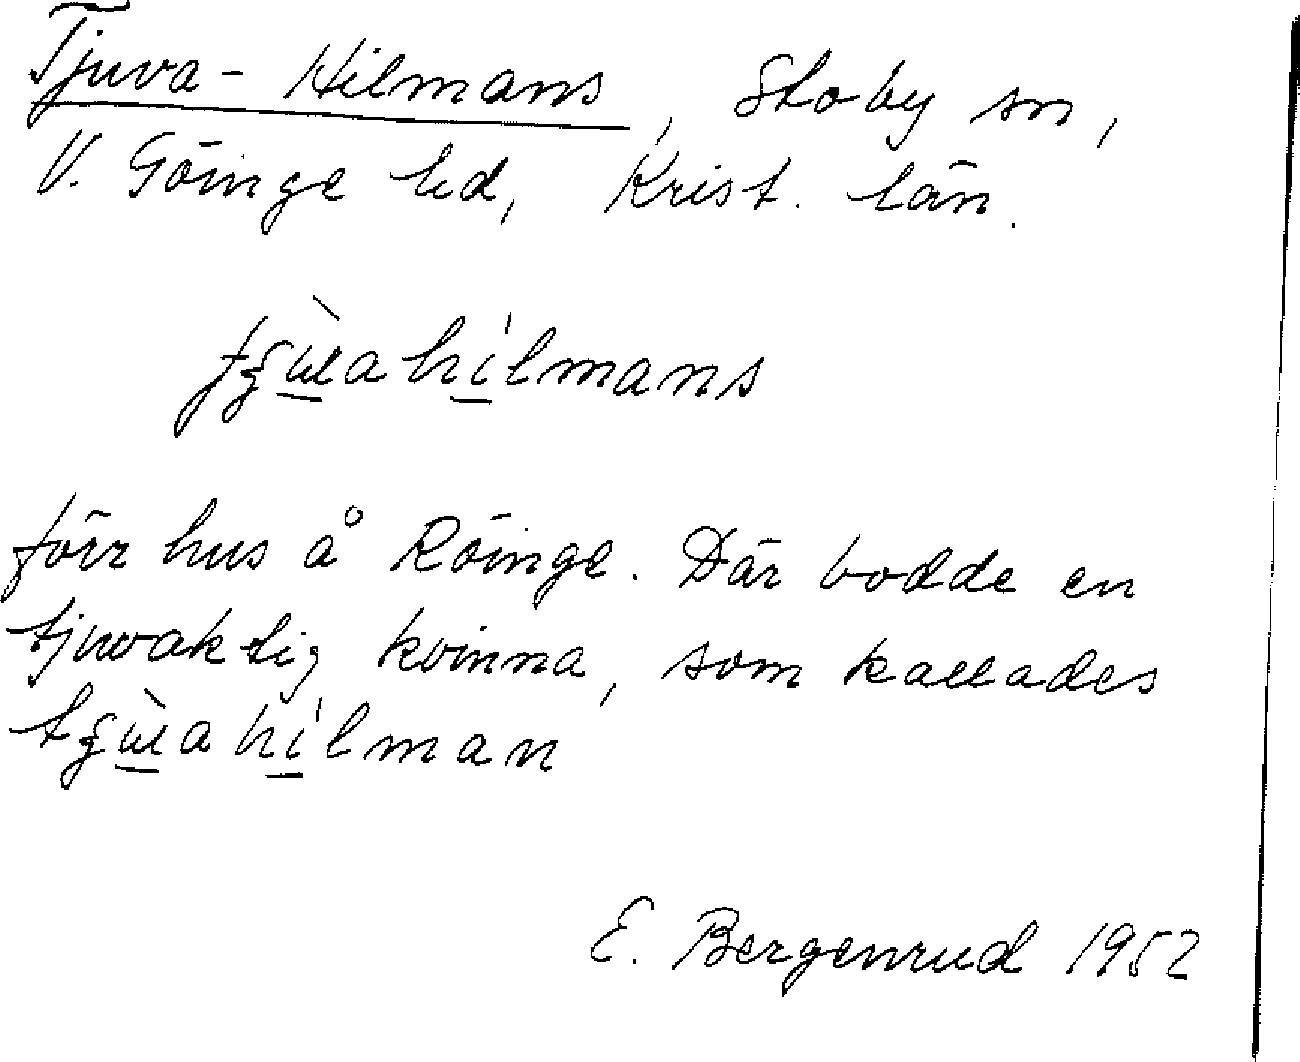 Tjuva-Hilmans, Stoby sn,
V. Göinge hd, Krist. län.
förr hus å Röinge. Där bodde en
tjuvaktig kvinna, som kallades
E. Bergenrud 1952